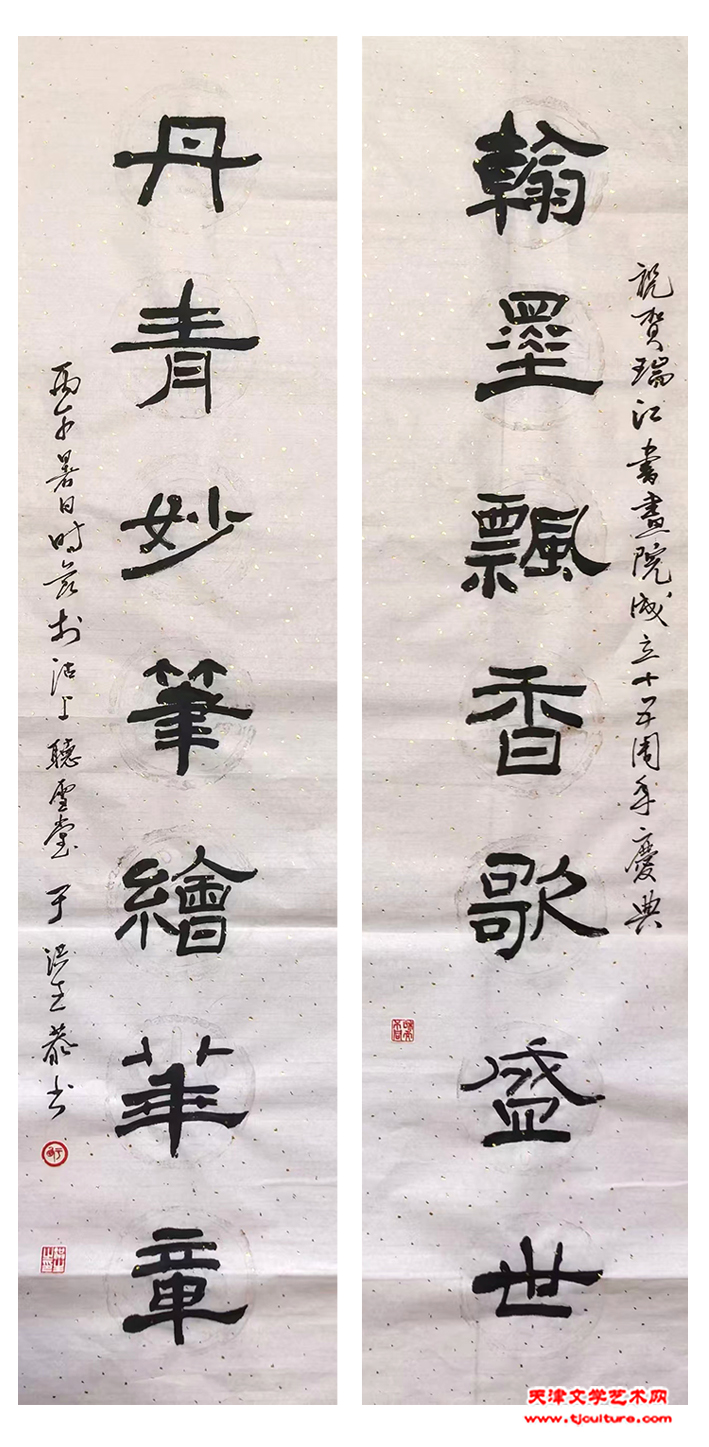 祝贺瑞江書畫院成立十五周年慶典
翰墨飄香歌盛世
丹青妙筆繪華章
丙午暑日时于於沽上聽雪堂
恭书
天津文学艺术网
www.tjculture.com